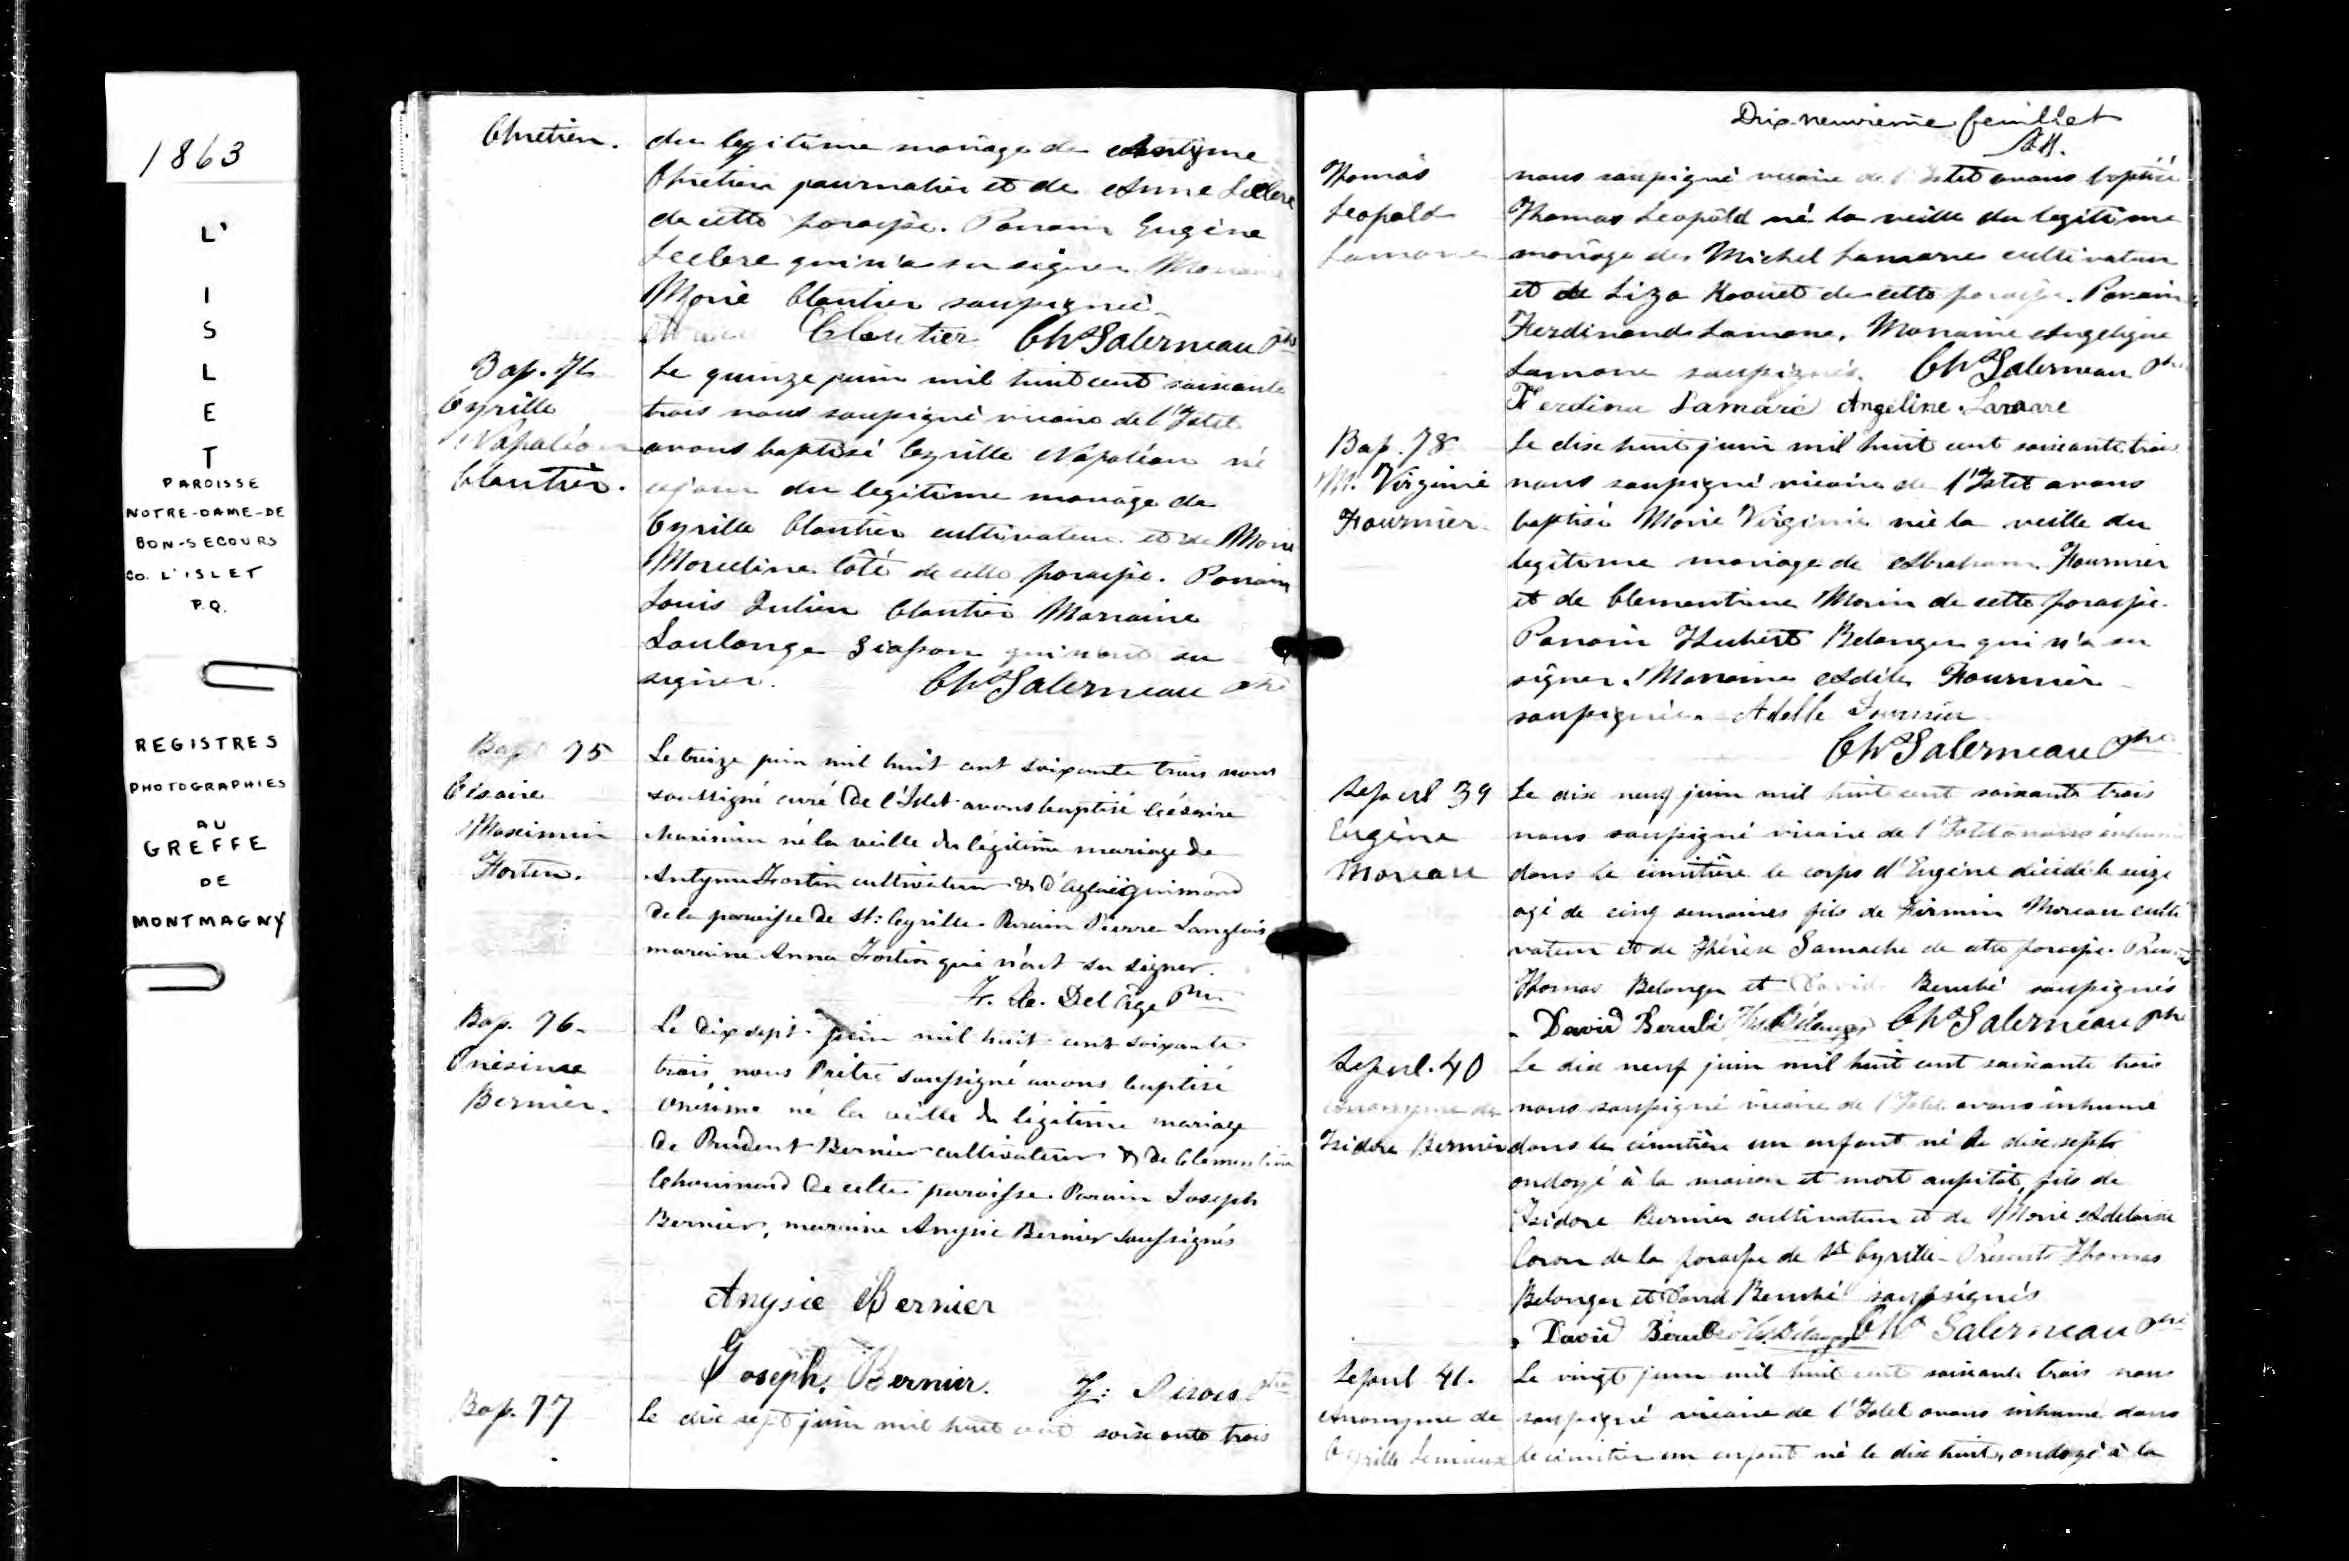 1863
L'
I
S
L
E
T
PAROISSE
NOTRE-DAME-DE
BON-SECOURS
CO. L'ISLET
P.Q.
REGISTRES
PHOTOGRAPHIES
AU
GREFFE
DE
MONTMAGNY
Chretien.
du legitime mariage de Antyme
Chretien journalier et de Anne Leclerc
de cette paroisse. Parrain Eugène
Leclerc qui n'a su signer Marraine
Marie Cloutier soussignée
Cloutier Chs Galerneau Ptre
Bap. 74
Cyrille
Napoléon
Cloutier.
Le quinze juin mil huit cent soixante
trois nous soussigné vicaire de l'Islet
avons baptisé Cyrille Napoléon né
ce jour du legitime mariage de
Cyrille Cloutier cultivateur et de Marie
Marceline Côté de cette paroisse. Parrain
Louis Julien Cloutier Marraine
Soulange Giasson qui n'ont su
signer. Chs Galerneau Ptre
Bap. 75
Césaire
Maximin
Fortin.
Le treize juin mil huit cent soixante trois nous
soussigné curé de l'Islet avons baptisé Césaire
Maximin né la veille du légitime mariage de
Antyme Fortin cultivateur & d'Aglaé Guimond
de la paroisse de St: Cyrille. Parain Pierre Langlois
maraine Anna Fortin qui n'ont su signer.
F. X. Delâge Ptre
Bap. 76.
Onésime
Bernier.
Le dix sept juin mil huit cent soixante
trois nous Prêtre soussigné avons baptisé
Onésime né la veille du légitime mariage
de Prudent Bernier cultivateur & de Clementine
Chouinard de cette paroisse. Parain Joseph
Bernier, maraine Anysie Bernier soussignés
Anysie Bernier
Joseph Bernier. Sirois Ptre
Bap. 77
Le dix sept juin mil huit cent soixante trois
Dix-neuvième feuillet
Thomas
Leopold
Lamarre
nous soussigné vicaire de l'Islet avons baptisé
Thomas Leopold né la veille du legitime
mariage de Michel Lamarre cultivateur
et de Liza de cette paroisse. Parrain
Ferdinand Lamarre. Marraine Angelique
Lamarre soussignés. Chs Galerneau Ptre
Ferdina Lamare Angéline Lamarre
Bap. 78
M. Virginie
Fournier
Le dix huit juin mil huit cent soixante trois
nous soussigné vicaire de l'Islet avons
baptisé Marie Virginie née la veille du
legitime mariage de Abraham Fournier
et de Clementine Morin de cette paroisse.
Parrain Hubert Belanger qui n'a su
signer. Marraine Adèle Fournier
soussignée. Adelle Fournier
Chs Galerneau Ptre
Sepul 39
Eugène
Moreau
Le dix neuf juin mil huit cent soixante trois
nous soussigné vicaire de l'Islet avons inhumé
dans le cimitière le corps d'Eugène décédé le seize
agé de cinq semaines fils de Firmin Moreau culti
vateur et de Thérèse Gamache de cette paroisse. Présents
Thomas Belanger et David Berubé soussignés
David Berubé Ths Bélanger Chs Galerneau Ptre
Sepul. 40
anonyme de
Isidore Bernier
Le dix neuf juin mil huit cent soixante trois
nous soussigné vicaire de l'Islet avons inhumé
dans le cimitière un enfant né le dix sept
ondoyé à la maison et mort aussitôt, fils de
Isidore Bernier cultivateur et de Marie Adelaide
Caron de la paroisse de St Cyrille. Présents Thomas
Belanger et David Berubé soussignés
David Bérubé Ths Bélanger Chs Galerneau Ptre
Sepul 41.
Anonyme de
Cyrille Lemieux
Le vingt juin mil huit cent soixante trois nous
soussigné vicaire de l'Islet avons inhumé dans
le cimitière un enfant né le dix huit, ondoyé à la